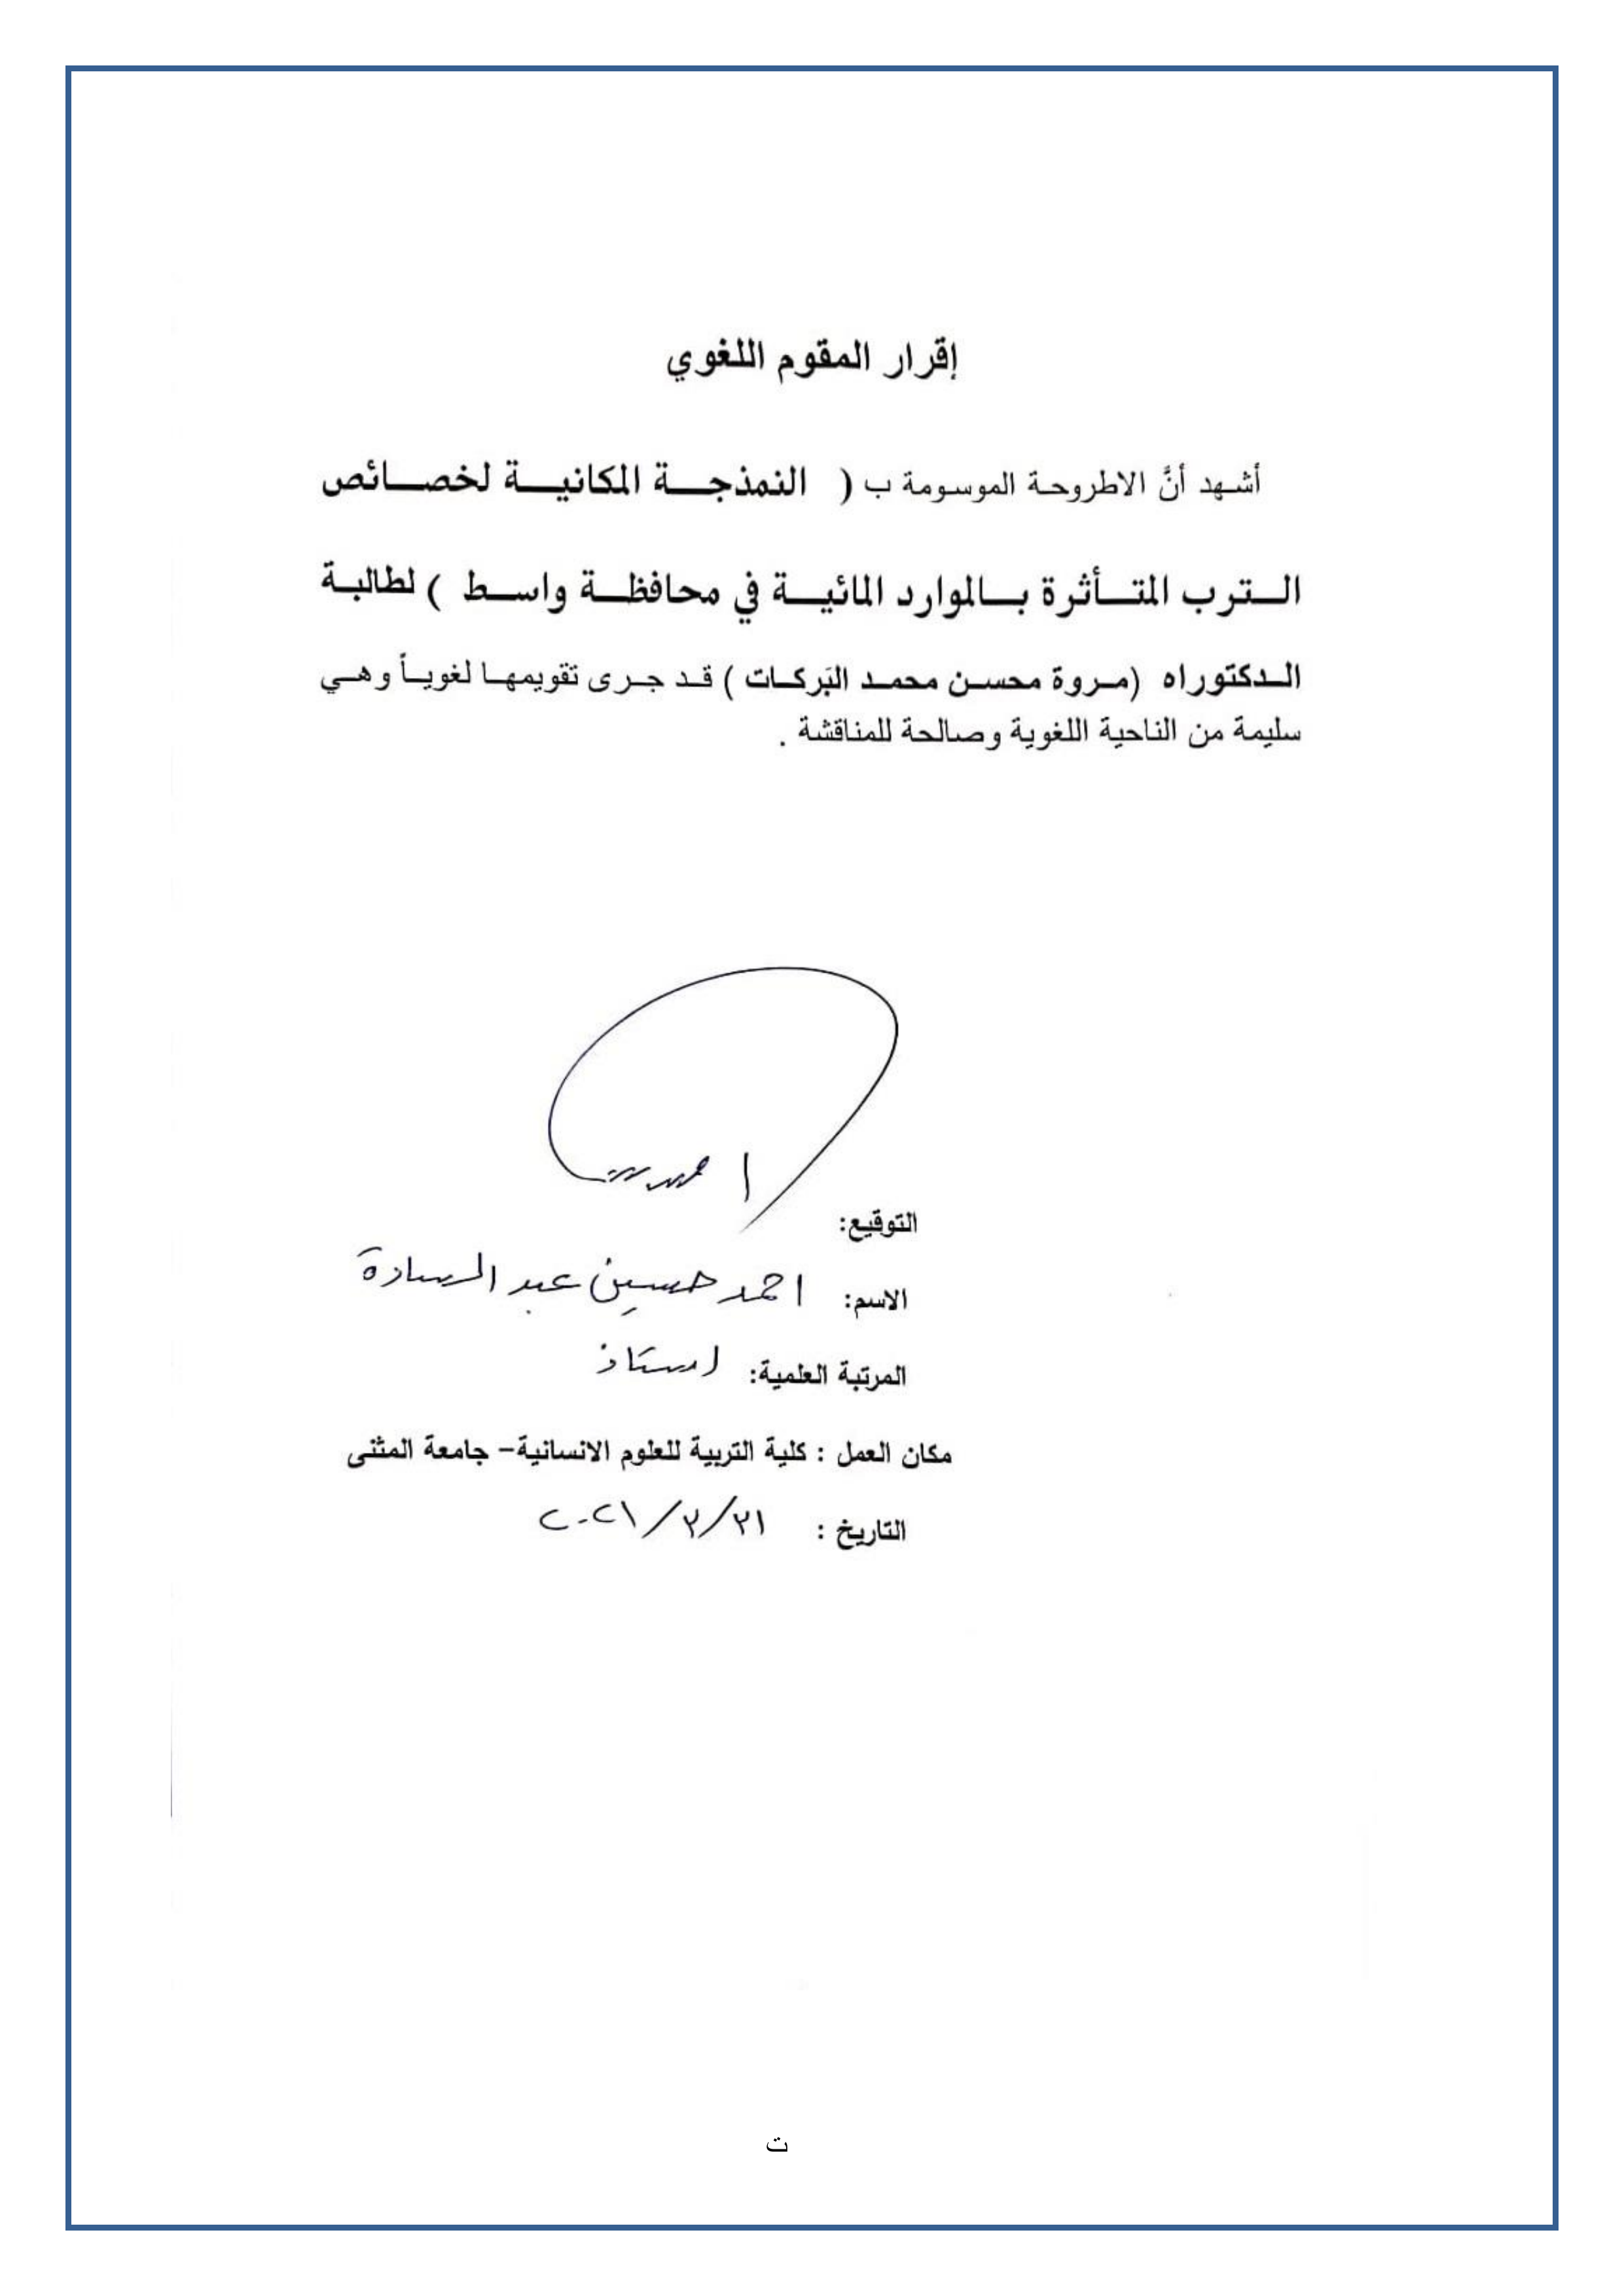 إقرار المقوم اللغوي
أشهد أنَّ الاطروحة الموسومة ب ( النمذجة المكانية لخصائص
الترب المتأثرة بالموارد المائية في محافظة واسط ) لطالبة
الدكتوراه (مروة محسن محمد البَركات ) قد جرى تقويمها لغوياً وهي
سليمة من الناحية اللغوية وصالحة للمناقشة .
التوقيع:
الاسم: احمد حسين عبد السادة
المرتبة العلمية: استاذ
مكان العمل : كلية التربية للعلوم الانسانية- جامعة المثنى
التاريخ :
ت